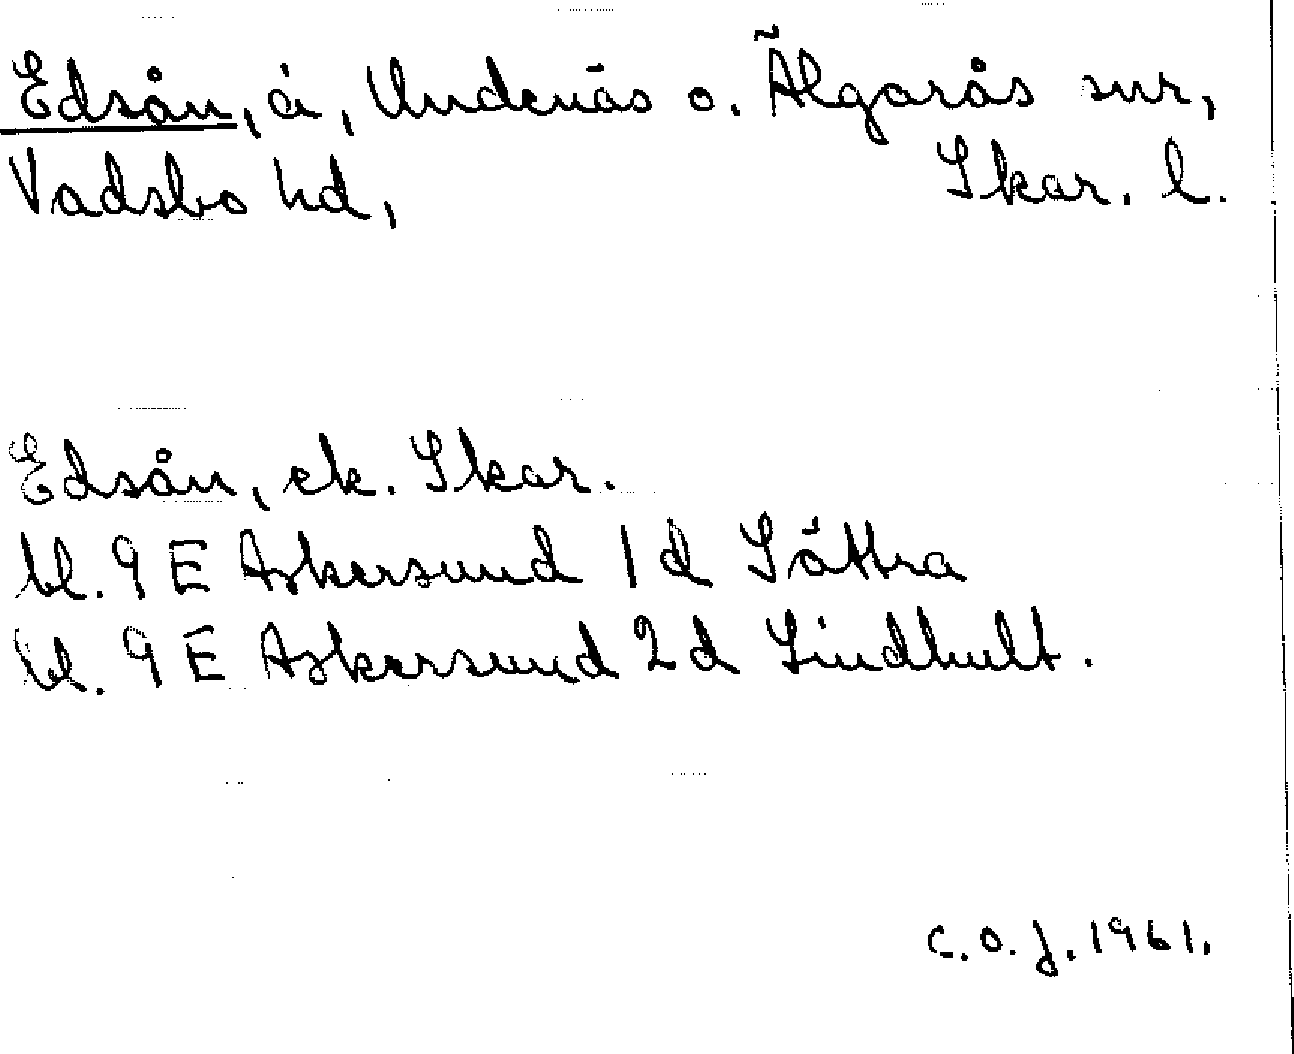 Edsån, å, Undenäs o. Älgarås snr,
Vadsbo hd, Skar. l.
Edsån, ek. Skar.
bl. 9 E Askersund 1 d Sättra
bl. 9 E Askersund 2 d Lindhult.
C.O.J. 1961.